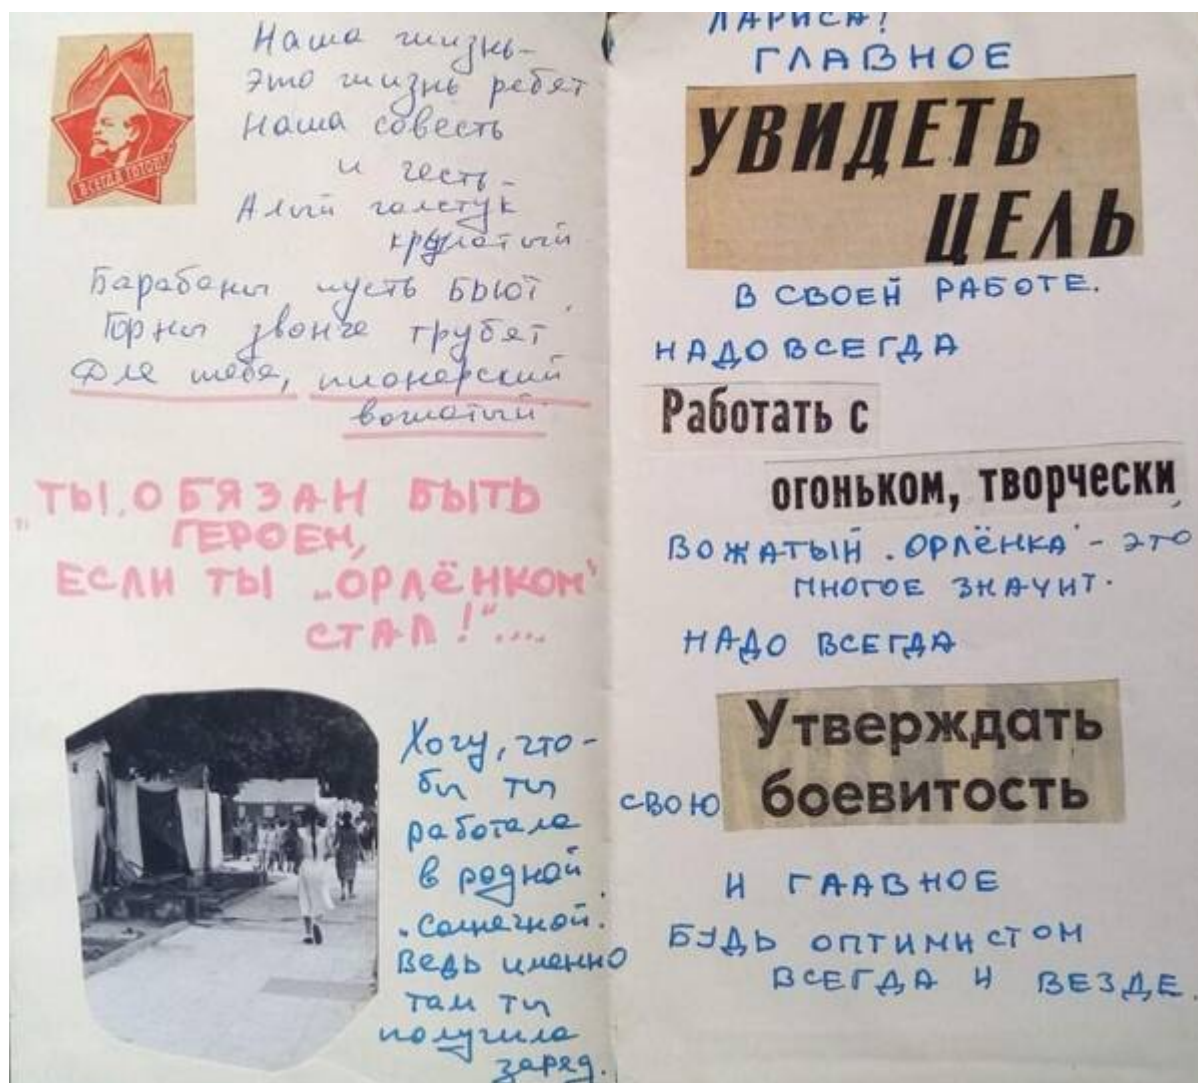 ВСЕГДА ГОТОВ!
Наша жизнь -
это жизнь ребят
Наша совесть
и честь -
Алый галстук
крылатый.
Барабаны пусть бьют,
Горны звонче трубят
Для тебя, пионерский
вожатый.
"ТЫ ОБЯЗАН БЫТЬ
ГЕРОЕМ,
ЕСЛИ ТЫ „ОРЛЁНКОМ"
СТАЛ!"....
Хочу, что-
бы ты
работала
в родной
„Солнечной".
Ведь именно
там ты
получила
заряд.
ЛАРИСА!
ГЛАВНОЕ
УВИДЕТЬ
ЦЕЛЬ
В СВОЕЙ РАБОТЕ.
НАДО ВСЕГДА
Работать с
огоньком, творчески,
ВОЖАТЫЙ „ОРЛЁНКА" - ЭТО
МНОГОЕ ЗНАЧИТ.
НАДО ВСЕГДА
Утверждать
СВОЮ боевитость
И ГЛАВНОЕ
БУДЬ ОПТИМИСТОМ
ВСЕГДА И ВЕЗДЕ.